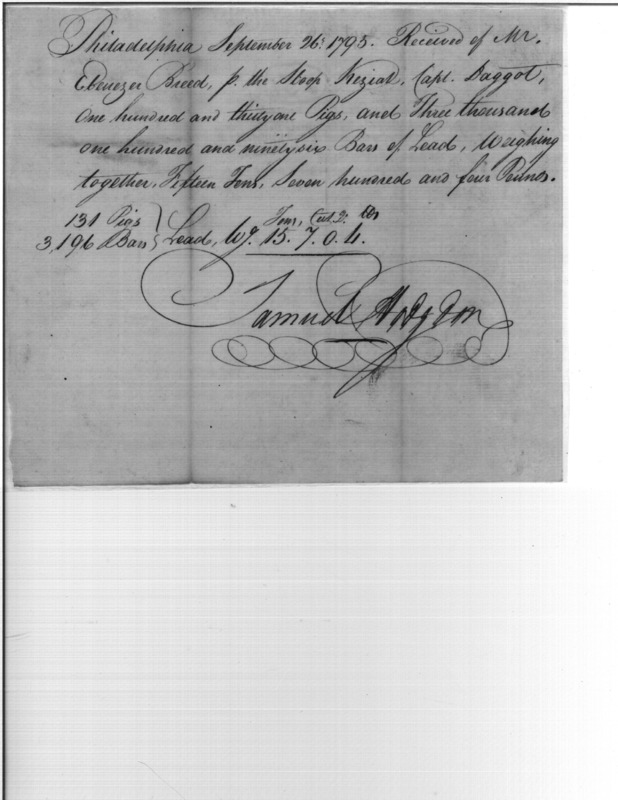 Philadelphia September 26: 1795. Received of Mr.
Ebenezer Breed, p. the Sloop Keziah, Capt. Daggot,
One hundred and thirtyone Pigs, and Three thousand
one hundred and ninetysix Bars of Lead, Weighing
together, Fifteen Tons, Seven hundred and four Pounds.
Tons, Cwt. Q. lbs
131 Pigs
3,196 Bars } Lead, Wg. 15. 7. 0. 4.
Samuel Hodgdon